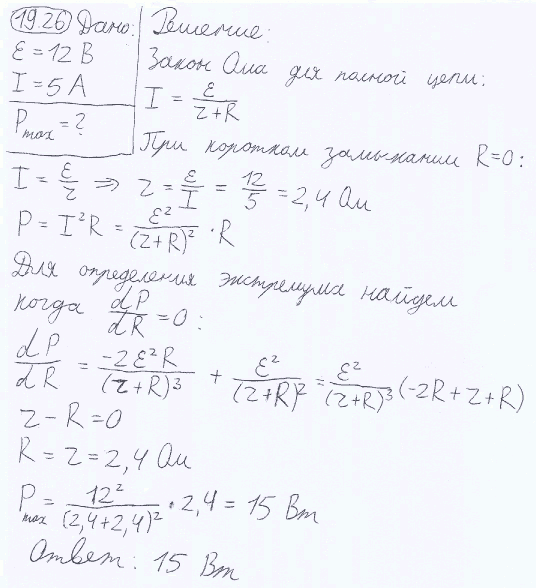 19.26 Дано: Решение:
ε = 12 В
Закон Ома для полной цепи:
I = 5 А
I = ε/(r+R)
P max = ?
При коротком замыкании R=0:
I = ε/r ⇒ r = ε/I = 12/5 = 2,4 Ом
P = I²R = ε²/(r+R)² · R
Для определения экстремума найдем
когда dP/dR = 0:
dP/dR = -2ε²R/(r+R)³ + ε²/(r+R)² = ε²/(r+R)³ (-2R+r+R)
r - R = 0
R = r = 2,4 Ом
P max = 12²/(2,4+2,4)² · 2,4 = 15 Вт
Ответ: 15 Вт